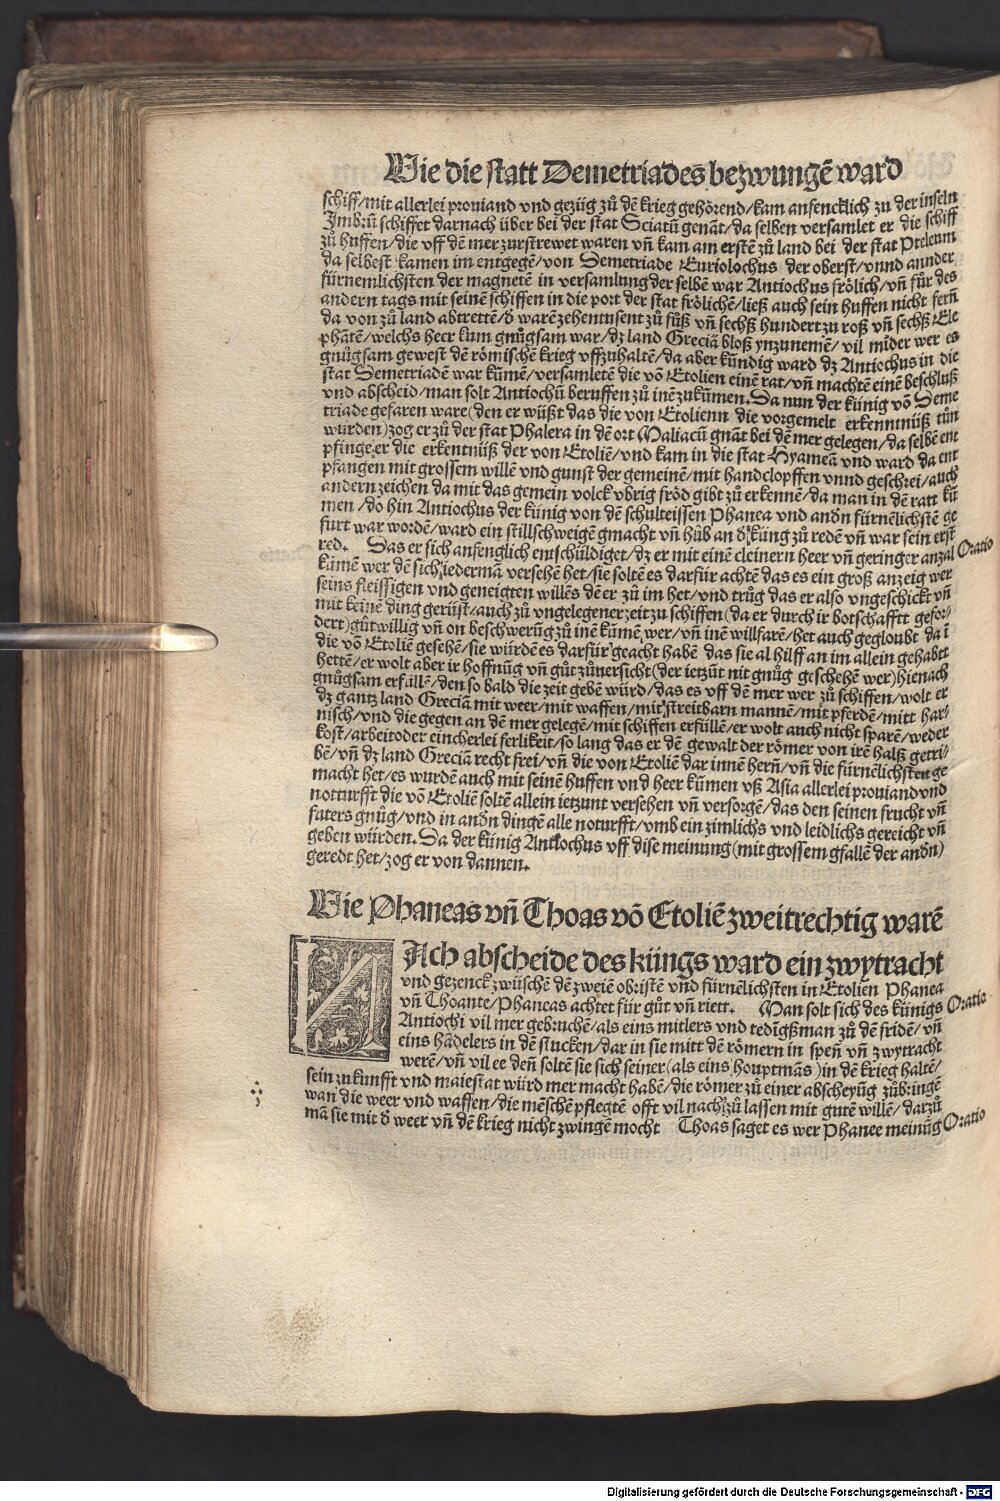 Wie die statt Demetriades bezwungē ward
schiff/mit allerlei prouiand vnd gezüg zů dē krieg gehörend/kam anfencklich zu der inseln
Imbrū schiffet darnach über bei der stat Sciatū genāt/da selben versamlet er die schiff
zů huffen/die vff dē mer zurstrewet waren vn̄ kam am erstē zů land bei der stat Pteleum
da selbest kamen im entgegē/von Demetriade Euriolochus der oberst/vnnd annder
fürnemlichsten der magnetē in versamlung der selbē war Antiochus frölich/vn̄ für des
andern tags mit seinē schiffen in die port der stat frölichē/ließ auch sein huffen nicht fern̄
da von zů land abtrettē/d̄ warē zehentusent zů fůß vn̄ sechß hundert zu roß vn̄ sechß Ele
phātē/welchs heer kum gnůgsam war/dz land Greciā bloß ynzunemē/vil mīder wer es
gnůgsam gewest dē römischē krieg vffzuhaltē/da aber kündig ward dz Antiochus in die
stat Demetriadē war kūmē/versamletē die vō Etolien einē rat/vn̄ machtē einē beschluß
vnd abscheid/man solt Antiochū beruffen zů inē zukūmen. Da nun der künig vō Deme
triade gefaren ware (den er wüßt das die von Etolienn die vorgemelt erkenntnüß tůn
wurden) zog er zů der stat Phalera in dē ort Maliacū gnāt bei dē mer gelegen/da selbē ent
pfinge er die erkentnüß der von Etoliē/vnd kam in die stat Hyameā vnd ward da ent
pfangen mit grossem willē vnd gunst der gemeinē/mit handclopffen vnnd geschrei/auch
andern zeichen da mit das gemein volck vbrig fröd gibt zů erkennē/da man in dē ratt kū
men/do hin Antiochus der künig von dē schulteissen Phanea vnd andn̄ fürnēlichstē ge
furt war wordē/ward ein stillschweigē gmacht vn̄ hůb an d̄ küng zů redē vn̄ war sein erst
red. Das er sich anfenglich entschüldiget/dz er mit einē cleinern heer vn̄ geringer anzal Oratio
kūmē wer dē sich iedermā versehē het/sie soltē es darfür achtē das es ein groß anzeig wer
seins fleissigen vnd geneigten willēs dē er zů im het/vnd trůg das er also vngeschickt vn̄
mit keinē ding gerüst/auch zů vngelegener zeit zu schiffen (da er durch ir botschafft gefor⸗
dert) gůtwillig vn̄ on beschwerūg zů inē kūmē wer/vn̄ inē willfarē/het auch gegloubt da ī
die vō Etoliē gesehē/sie würdē es darfür geacht habē das sie al hilff an im allein gehabtt
hettē/er wolt aber ir hoffnūg vn̄ gůt zůuersicht (der ietzūt nit gnůg geschehē wer) hienach
gnůgsam erfüllē/den so bald die zeit gebē würd/das es vff dē mer wer zů schiffen/wolt er
dz gantz land Greciā mit weer/mit waffen/mit streitbarn mannē/mit pferdē/mitt har⸗
nisch/vnd die gegen an dē mer gelegē/mit schiffen erfüllē/er wolt auch nicht sparē/weder
kost/arbeit oder eincherlei ferlikeit/so lang das er dē gewalt der römer von irē halß getri⸗
bē/vn̄ dz land Greciā recht frei/vn̄ die von Etoliē dar innē hern̄/vn̄ die fürnēlichsten ge
macht het/es wurdē auch mit seinē huffen vnd heer kūmen vß Asia allerlei prouiand vnd
notturfft die vō Etoliē soltē allein ietzunt versehen vn̄ versorgē/das den seinen frucht vn̄
futers gnůg/vnd in andn̄ dingē alle noturfft/vmb ein zimlichs vnd leidlichs gereicht vn̄
geben würden. Da der künig Antiochus vff dise meinung (mit grossem gfallē der andn̄)
geredt het/zog er von dannen.
Wie Phaneas vn̄ Thoas vō Etoliē zweitrechtig warē
NAch abscheide des küngs ward ein zwytracht
vnd gezenck zwüschē dē zweiē obristē vnd fürnēlichsten in Etolien Phanea
vn̄ Thoante/Phaneas achtet für gůt vn̄ riett. Man solt sich des künigs Oratio
Antiochi vil mer gebruchē/als eins mitlers vnd tedīgßman zů dē fridē/vn̄
eins hādelers in dē stucken/dar in sie mitt dē römern in spen̄ vn̄ zwytracht
werē/vn̄ vil ee den̄ soltē sie sich seiner (als eins houptmās) in dē krieg haltē/
sein zukunfft vnd maiestat würd mer macht habē/die römer zů einer abscheyūg zůbringē
wan die weer vnd waffen/die mēschē pflegtē offt vil nach zů lassen mit gutē willē/darzů
mā sie mit d̄ weer vn̄ dē krieg nicht zwingē mocht Thoas saget es wer Phanee meinūg Oratio
Digitalisierung gefördert durch die Deutsche Forschungsgemeinschaft - DFG